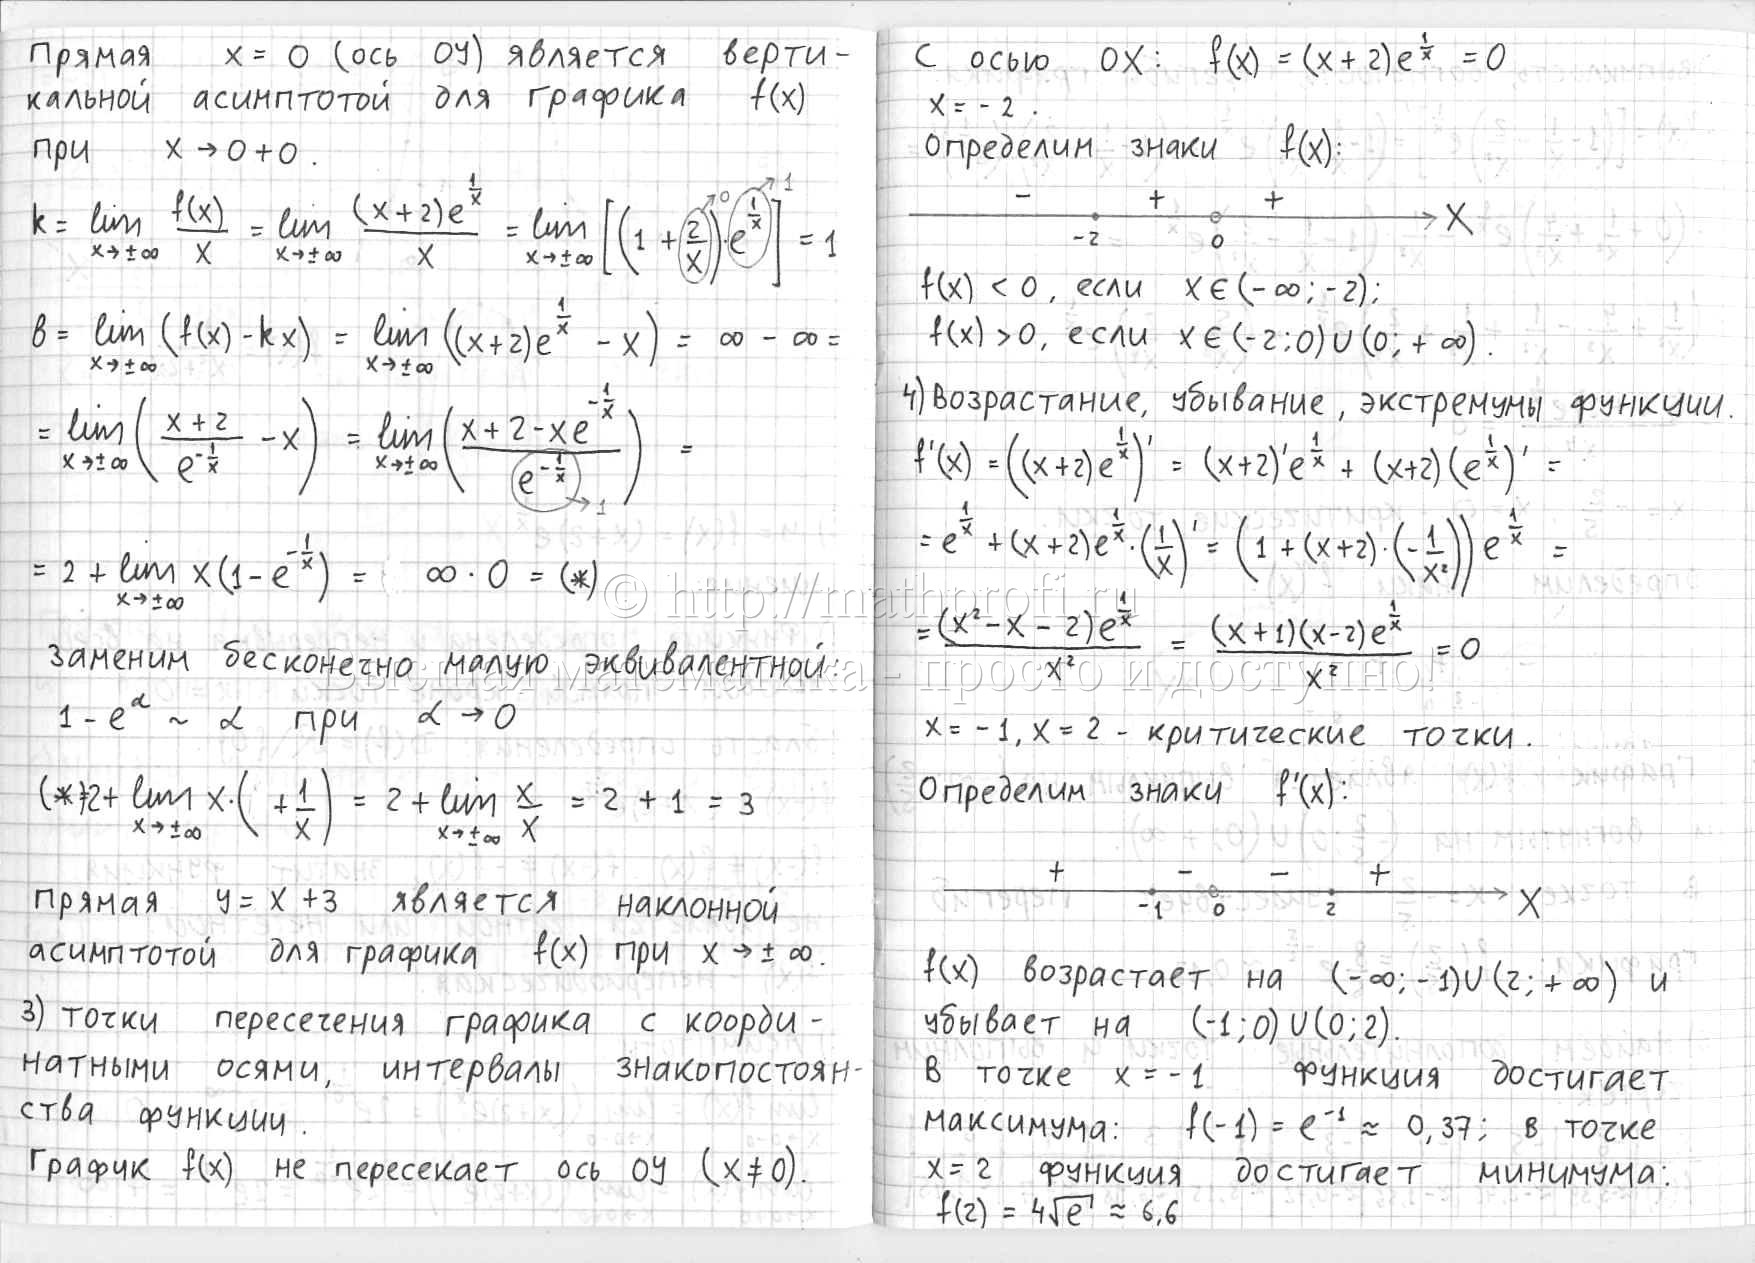 Прямая x = 0 (ось OY) является верти-
кальной асимптотой для графика f(x)
при x → 0+0.
k = lim x→±∞ f(x)/x = lim x→±∞ (x+2)e^(1/x)/x = lim x→±∞ [(1 + 2/x)·e^(1/x)] = 1
→0 →1
b = lim x→±∞ (f(x) - kx) = lim x→±∞ ((x+2)e^(1/x) - x) = ∞ - ∞ =
= lim x→±∞ ((x+2)/e^(-1/x) - x) = lim x→±∞ ((x+2-xe^(-1/x))/e^(-1/x)) =
→1
= 2 + lim x→±∞ x(1-e^(-1/x)) = ∞ · 0 = (*)
Заменим бесконечно малую эквивалентной:
1 - e^α ~ α при α → 0
(*)=2+ lim x→±∞ x·(+1/x) = 2 + lim x→±∞ x/x = 2 + 1 = 3
Прямая y = x + 3 является наклонной
асимптотой для графика f(x) при x → ±∞.
3) Точки пересечения графика с коорди-
натными осями, интервалы знакопостоян-
ства функции.
График f(x) не пересекает ось OY (x≠0).
С осью OX: f(x) = (x+2)e^(1/x) = 0
x = -2.
Определим знаки f(x):
- + +
-2 0 X
f(x) < 0, если x∈(-∞; -2);
f(x) > 0, если x∈(-2;0)∪(0;+∞).
4) Возрастание, убывание, экстремумы функции.
f'(x) = ((x+2)e^(1/x))' = (x+2)'e^(1/x) + (x+2)(e^(1/x))' =
= e^(1/x) + (x+2)e^(1/x)·(1/x)' = (1+(x+2)·(-1/x²))e^(1/x) =
= (x²-x-2)e^(1/x)/x² = (x+1)(x-2)e^(1/x)/x² = 0
x = -1, x = 2 - критические точки.
Определим знаки f'(x):
+ - - +
-1 0 2 X
f(x) возрастает на (-∞; -1)∪(2; +∞) и
убывает на (-1;0)∪(0;2).
В точке x = -1 функция достигает
максимума: f(-1) = e^(-1) ≈ 0,37; в точке
x=2 функция достигает минимума:
f(2) = 4√e ≈ 6,6
© http://mathprofi.ru
Высшая математика - просто и доступно!